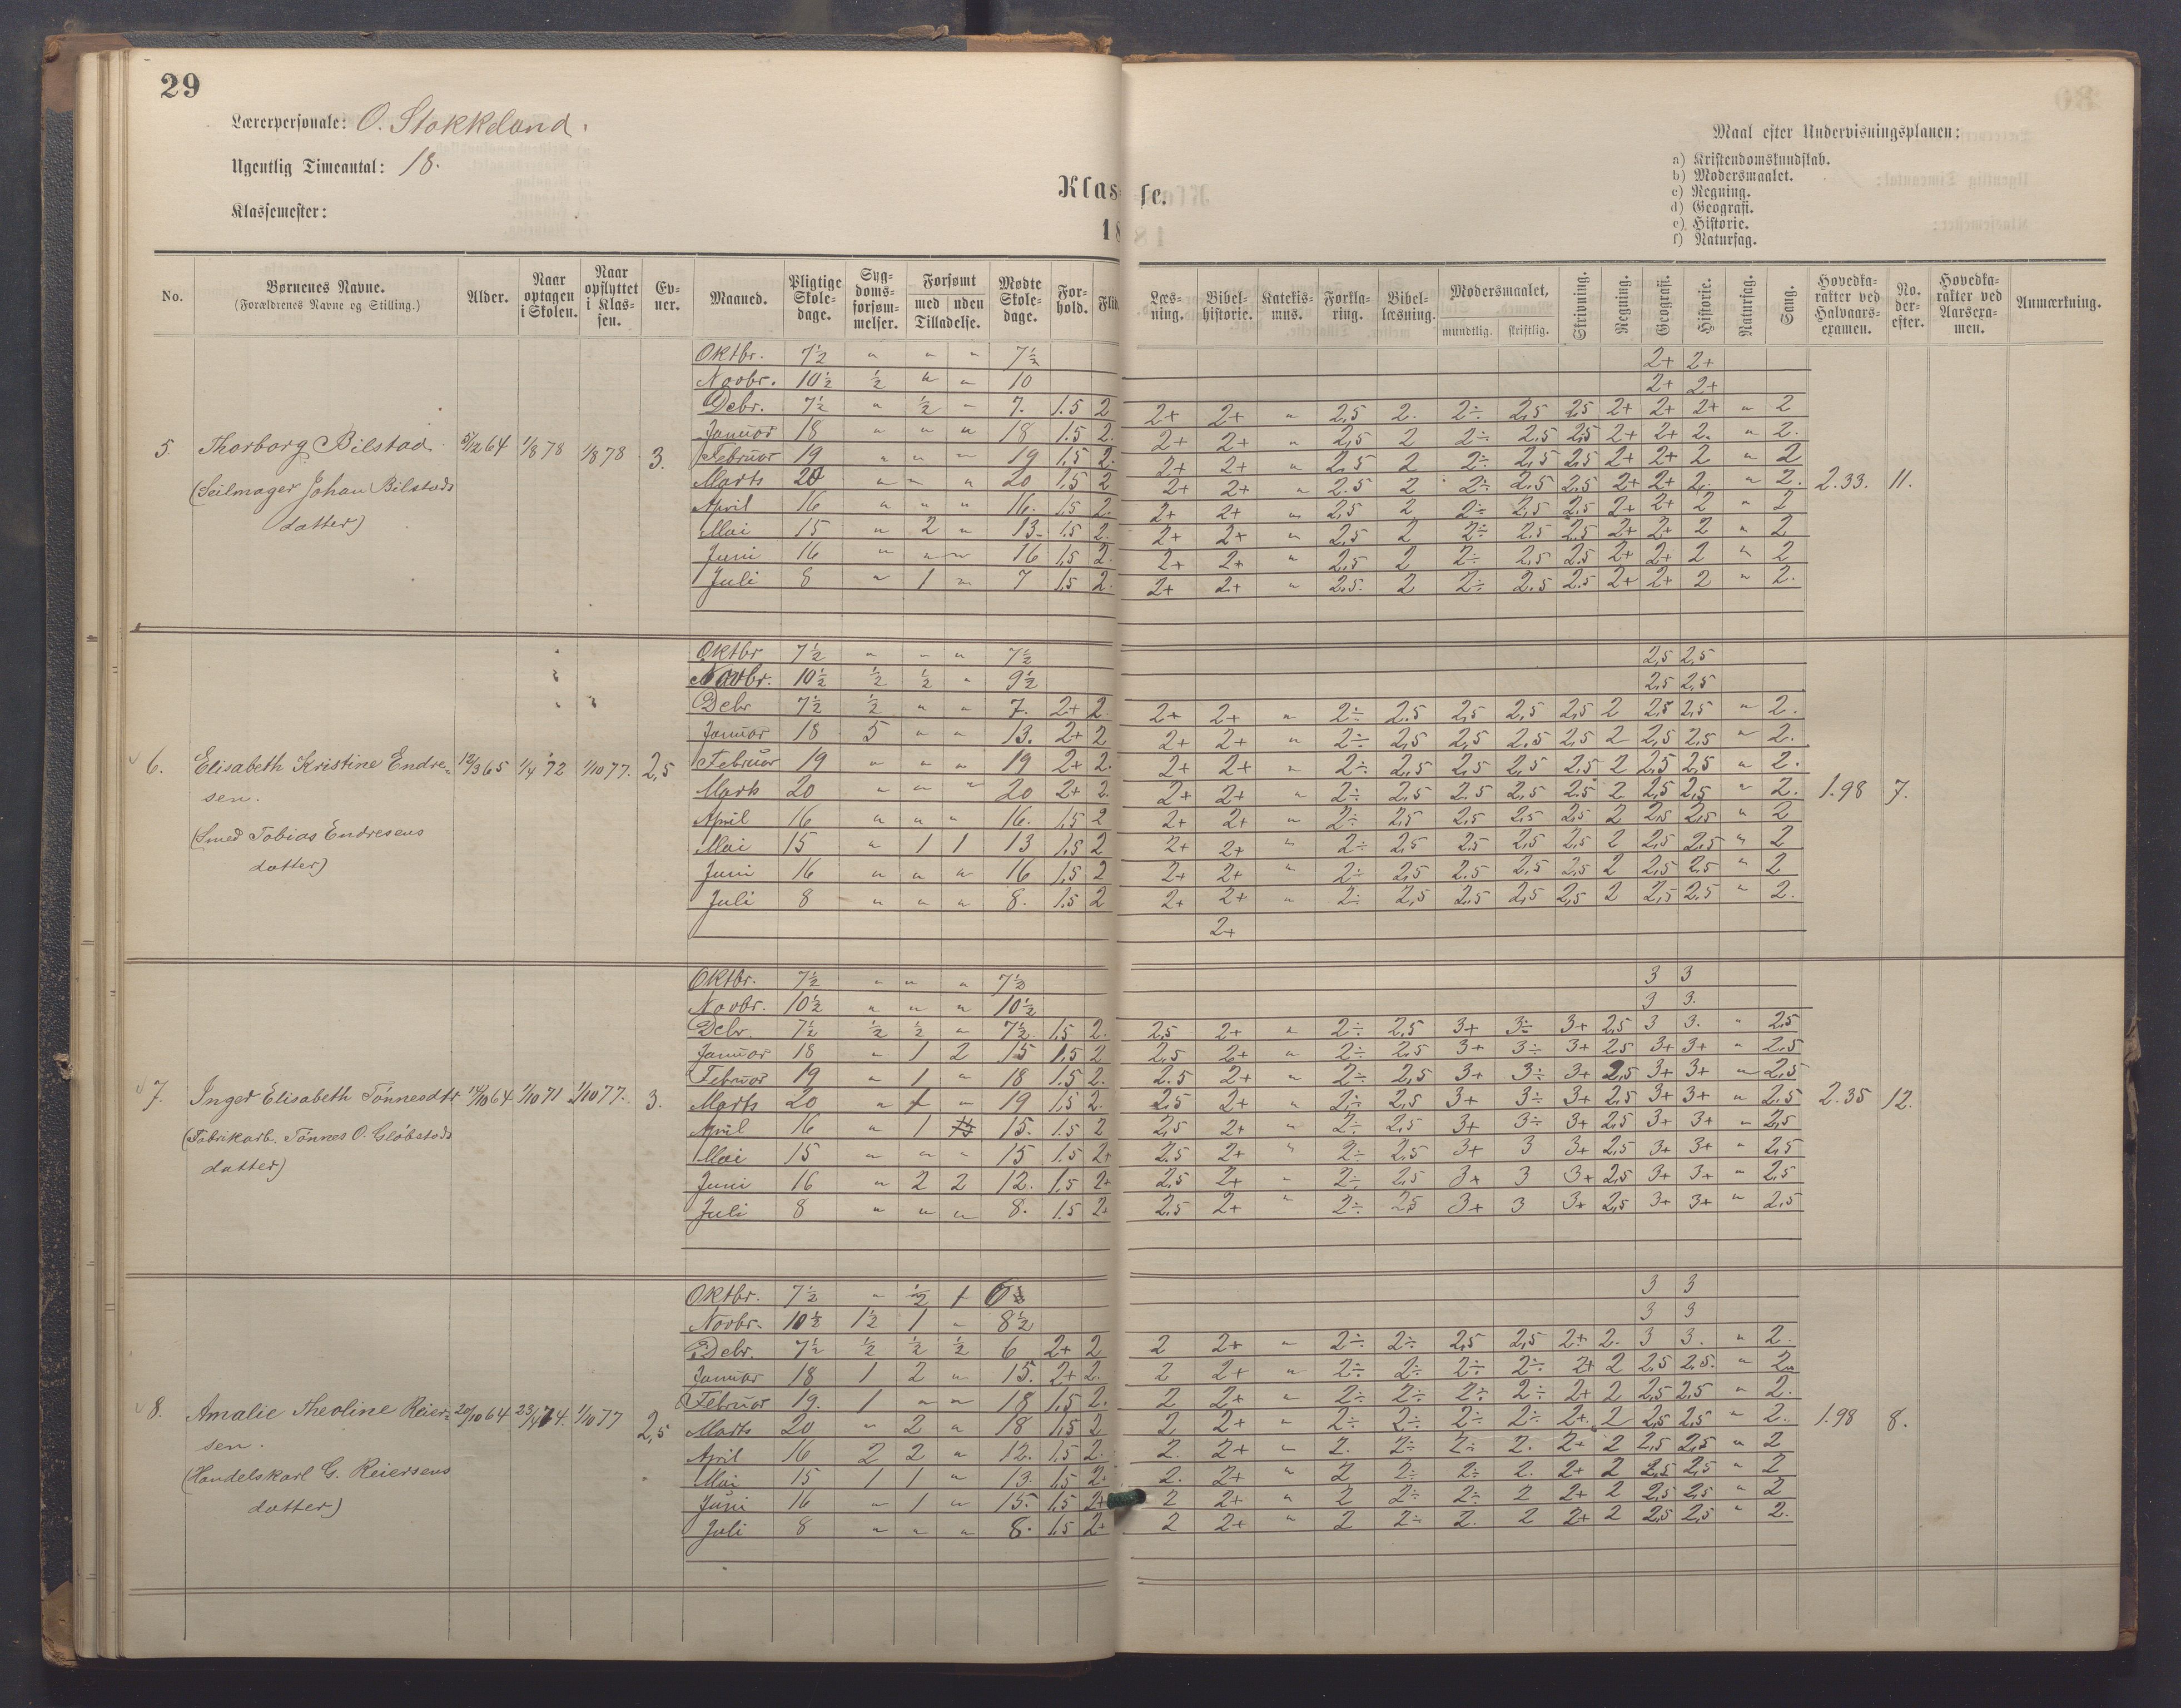 29
Lærerpersonale: O. Stokkeland.
Ugentlig Timeantal: 18.
Klassemester:
Klasse.
18
Maal efter Undervisningsplanen:
a) Kristendomskundskab.
b) Modersmaalet.
c) Regning.
d) Geografi.
e) Historie.
f) Naturfag.
No. Børnenes Navne. (Forældrenes Navne og Stilling.) Alder. Naar optagen i Skolen. Naar opflyttet i Klassen. Evner. Maaned. Pligtige Skoledage. Sygdomsforsømmelser. Forsømt med uden Tilladelse. Mødte Skoledage. Forhold. Flid. Læsning. Bibelhistorie. Katekismus. Forklaring. Bibellæsning. Modersmaalet, mundtlig. skriftlig. Skrivning. Regning. Geografi. Historie. Naturfag. Sang. Hovedkarakter ved Halvaarsexamen. No. derefter. Hovedkarakter ved Aarsexamen. Anmærkning.
Oktbr. 7½ " " " 7½ 2+ 2+
Novbr. 10½ ½ " " 10 2+ 2+
Debr. 7½ " ½ " 7. 1.5 2 2+ 2+ " 2,5 2. 2÷ 2,5 2,5 2+ 2+ 2+ " 2
Januar 18 " " " 18 1.5 2. 2+ 2+ " 2,5 2 2÷ 2.5 2,5 2+ 2+ 2. " 2.
5. Thorborg Bilstad 5/12 64 1/8 78 1/8 78 3. Februar 19 " " " 19 1,5 2. 2+ 2+ " 2.5 2 2÷ 2,5 2.5 2+ 2+ 2 " 2
(Seilmager Johan Bilstads Marts 20 " " " 20 1,5 2 2+ 2+ " 2.5 2 2÷ 2,5 2.5 2+ 2+ 2. " 2. 2.33. 11.
April 16 " " " 16. 1.5 2. 2+ 2+ " 2,5 2 2÷ 2,5 2.5 2+ 2+ 2 " 2
datter) Mai 15 " 2 " 13. 1.5 2. 2+ 2+ " 2,5 2 2÷ 2.5 2.5 2+ 2+ 2 " 2
Juni 16 " " " 16 1,5 2. 2+ 2+ " 2,5 2 2÷ 2,5 2.5 2+ 2+ 2 " 2
Juli 8 " 1 " 7 1,5 2. 2+ 2+ " 2.5. 2 2÷ 2.5 2.5 2+ 2+ 2 " 2.
Oktbr 7½ " " " 7½ 2,5 2,5
Novbr. 10½ ½ ½ " 9½ 2,5 2,5
Debr 7½ ½ " " 7. 2+ 2. 2+ 2+ " 2÷ 2.5 2,5 2,5 2,5 2 2,5 2,5 " 2.
Januar 18 5 " " 13. 2+ 2 2+ 2+ " 2÷ 2,5 2,5 2.5 2,5 2 2,5 2,5 " 2.
6. Elisabeth Kristine Endre= 12/3 65 1/4 72 1/10 77. 2,5 Februar 19 " " " 19 2+ 2. 2+ 2+ " 2÷ 2,5 2.5 2,5 2.5 2 2,5 2,5 " 2.
sen. Marts 20 " " " 20 2+ 2. 2+ 2+ " 2÷ 2.5 2.5 2,5 2.5 2 2,5 2,5 " 2. 1.98 7.
(Smed Tobias Endresens April 16 " " " 16. 1,5 2 2+ 2+ " 2÷ 2,5 2,5 2,5 2,5 2 2,5 2,5 " 2
Mai 15 " 1 1 13 1,5 2 2+ 2+ " 2÷ 2,5 2.5 2,5 2,5 2 2,5 2,5 " 2
datter) Juni 16 " " " 16 1,5 2 2+ 2+ " 2÷ 2,5 2.5 2,5 2,5 2 2,5 2,5 " 2
Juli 8 " " " 8. 1.5 2 2+ 2+ " 2÷ 2,5 2.5 2,5 2,5 2 2,5 2,5 " 2.
2+
Oktbr. 7½ " " " 7½ 3 3
Novbr. 10½ " " " 10½ 3 3.
Debr. 7½ ½ ½ " 7½ 1,5 2. 2,5 2+ " 2÷ 2,5 3+ 3÷ 3+ 2,5 3 3. " 2,5
Januar 18 " 1 2 15 1.5 2 2,5 2+ " 2÷ 2.5 3+ 3÷ 3+ 2,5 3+ 3+ " 2,5
Februar 19 " 1 " 18 1.5 2. 2.5 2+ " 2÷ 2,5 3+ 3÷ 3+ 2,5 3+ 3+ " 2,5
7. Inger Elisabeth Tönnesdtr 14/10 64 1/10 71 1/10 77. 3. Marts 20 " 1 " 19 1,5 2. 2,5 2+ " 2÷ 2,5 3+ 3÷ 3+ 2,5 3+ 3+ " 2.5 2.35 12.
(Fabrikarb. Tönnes O. Glöbstads April 16 " 1 15. 1.5 2 2,5 2+ " 2÷ 2,5 3+ 3÷ 3+ 2,5 3+ 3+ " 2,5
datter) Mai 15 " " " 15 1.5 2+ 2.5 2+ " 2÷ 2.5 3+ 3 3+ 2,5 3+ 3+ " 2,5
Juni 16 " 2 2 12. 1,5 2+ 2,5 2+ " 2÷ 2,5 3+ 3 3+ 2,5 3+ 3+ " 2,5
Juli 8 " " " 8. 1.5 2+ 2,5 2+ " 2÷ 2,5 3+ 3 3+ 2,5 3+ 3+ " 2,5
Oktbr. 7½ " ½ 1 6 3 3
Novbr. 10½ 1½ 1 " 8½ 3 3
Debr. 7½ ½ ½ ½ 6 2+ 2 2 2+ " 2÷ 2÷ 2,5 2,5 2+ 2. 3 3. " 2.
Januar 18 1 2 " 15. 2+ 2. 2 2+ " 2÷ 2÷ 2÷ 2÷ 2+ 2 2,5 2,5. " 2
Februar 19. 1 " " 18 1,5 2. 2 2+ " 2÷ 2÷ 2÷ 2÷ 2+ 2 2,5 2,5 " 2.
8. Amalie Theoline Reier= 20/10 64 23/4 74. 1/10 77 2,5 Marts 20 " 2 " 18 1,5 2 2 2+ " 2÷ 2÷ 2÷ 2÷ 2+ 2 2,5 2,5 " 2. 1.98 8.
sen. April 16 2 2 " 12. 1.5 2. 2. 2+ " 2. 2÷ 2÷ 2. 2+ 2 2,5 2,5 " 2
(Handelskarl G. Reiersens Mai 15 1 1 " 13. 1.5 2+ 2. 2+ " 2 2÷ 2÷ 2. 2+ 2 2,5 2,5 " 2
datter) Juni 16 " 1 " 15. 1.5 2+ 2 2+ " 2 2÷ 2÷ 2 2+ 2 2,5 2,5 " 2
Juli 8 " " " 8. 1.5 2+ 2 2+ " 2 2÷ 2. 2 2+ 2 2,5 2,5 " 2.